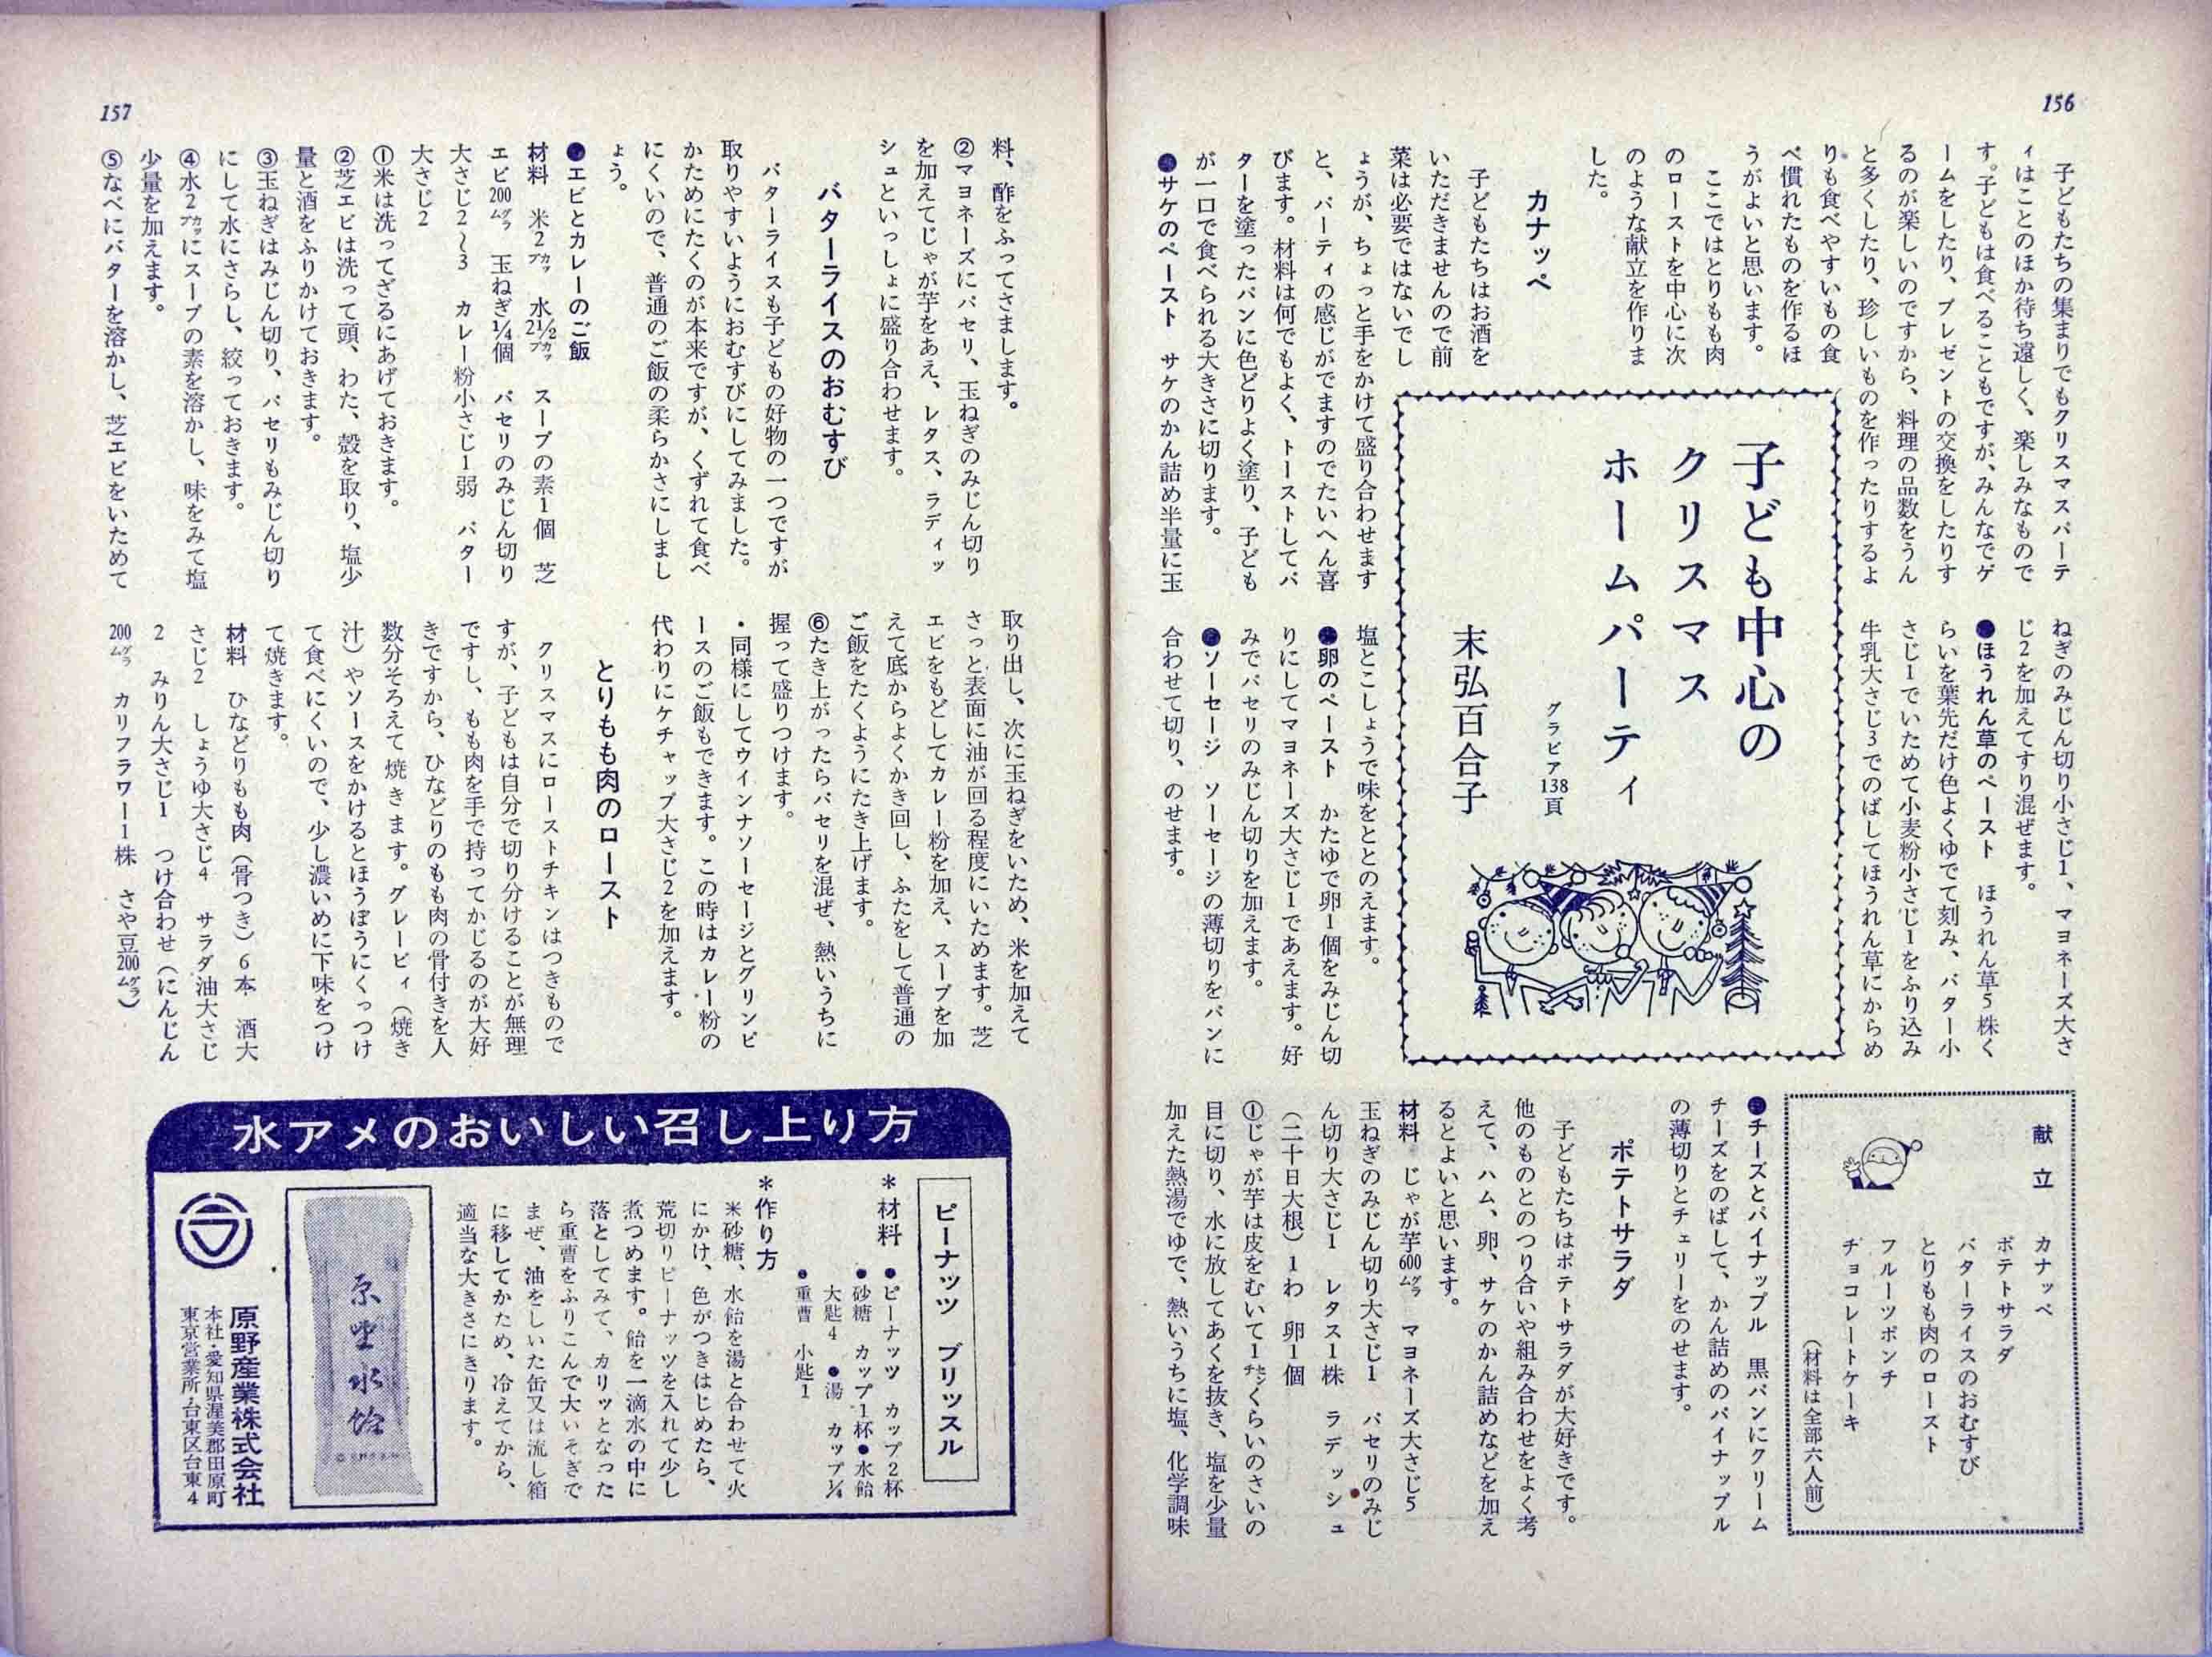 156
子どもたちの集まりでもクリスマスパーテ
ィはことのほか待ち遠しく、楽しみなもので
す。子どもは食べることもですが、みんなでゲ
ームをしたり、プレゼントの交換をしたりす
るのが楽しいのですから、料理の品数をうん
と多くしたり、珍しいものを作ったりするよ
りも食べやすいもの食
べ慣れたものを作るほ
うがよいと思います。
ここではとりもも肉
のローストを中心に次
のような献立を作りま
した。
カナッペ
子どもたちはお酒を
いただきませんので前
菜は必要ではないでし
ょうが、ちょっと手をかけて盛り合わせます
と、パーティの感じがでますのでたいへん喜
びます。材料は何でもよく、トーストしてバ
ターを塗ったパンに色どりよく塗り、子ども
が一口で食べられる大きさに切ります。
●サケのペースト サケのかん詰め半量に玉
子ども中心の
クリスマス
ホームパーティ
グラビア138頁
末弘百合子
ねぎのみじん切り小さじ1、マヨネーズ大さ
じ2を加えてすり混ぜます。
●ほうれん草のペースト ほうれん草5株く
らいを葉先だけ色よくゆでて刻み、バター小
さじ1でいためて小麦粉小さじ1をふり込み
牛乳大さじ3でのばしてほうれん草にからめ
塩とこしょうで味をととのえます。
●卵のペースト かたゆで卵1個をみじん切
りにしてマヨネーズ大さじ1であえます。好
みでパセリのみじん切りを加えます。
●ソーセージ ソーセージの薄切りをパンに
合わせて切り、のせます。
献立
カナッペ
ポテトサラダ
バターライスのおむすび
とりもも肉のロースト
フルーツポンチ
チョコレートケーキ
(材料は全部六人前)
●チーズとパイナップル 黒パンにクリーム
チーズをのばして、かん詰めのパイナップル
の薄切りとチェリーをのせます。
ポテトサラダ
子どもたちはポテトサラダが大好きです。
他のものとのつり合いや組み合わせをよく考
えて、ハム、卵、サケのかん詰めなどを加え
るとよいと思います。
材料 じゃが芋600グラム マヨネーズ大さじ5
玉ねぎのみじん切り大さじ1 パセリのみじ
ん切り大さじ1 レタス1株 ラデッシュ
(二十日大根)1わ 卵1個
①じゃが芋は皮をむいて1センチくらいのさいの
目に切り、水に放してあくを抜き、塩を少量
加えた熱湯でゆで、熱いうちに塩、化学調味
157
料、酢をふってさまします。
②マヨネーズにパセリ、玉ねぎのみじん切り
を加えてじゃが芋をあえ、レタス、ラディッ
シュといっしょに盛り合わせます。
バターライスのおむすび
バターライスも子どもの好物の一つですが
取りやすいようにおむすびにしてみました。
かためにたくのが本来ですが、くずれて食べ
にくいので、普通のご飯の柔らかさにしまし
ょう。
●エビとカレーのご飯
材料 米2カップ 水2½カップ スープの素1個 芝
エビ200グラム 玉ねぎ¼個 パセリのみじん切り
大さじ2〜3 カレー粉小さじ1弱 バター
大さじ2
①米は洗ってざるにあげておきます。
②芝エビは洗って頭、わた、殻を取り、塩少
量と酒をふりかけておきます。
③玉ねぎはみじん切り、パセリもみじん切り
にして水にさらし、絞っておきます。
④水2カップにスープの素を溶かし、味をみて塩
少量を加えます。
⑤なべにバターを溶かし、芝エビをいためて
取り出し、次に玉ねぎをいため、米を加えて
さっと表面に油が回る程度にいためます。芝
エビをもどしてカレー粉を加え、スープを加
えて底からよくかき回し、ふたをして普通の
ご飯をたくようにたき上げます。
⑥たき上がったらパセリを混ぜ、熱いうちに
握って盛りつけます。
・同様にしてウインナソーセージとグリンピ
ースのご飯もできます。この時はカレー粉の
代わりにケチャップ大さじ2を加えます。
とりもも肉のロースト
クリスマスにローストチキンはつきもので
すが、子どもは自分で切り分けることが無理
ですし、もも肉を手で持ってかじるのが大好
きですから、ひなどりのもも肉の骨付きを人
数分そろえて焼きます。グレービィ(焼き
汁)やソースをかけるとほうぼうにくっつけ
て食べにくいので、少し濃いめに下味をつけ
て焼きます。
材料 ひなどりもも肉(骨つき)6本 酒大
さじ2 しょうゆ大さじ4 サラダ油大さじ
2 みりん大さじ1 つけ合わせ(にんじん
200グラム カリフラワー1株 さや豆200グラム)
水アメのおいしい召し上り方
ピーナッツ ブリッスル
*材料 ●ピーナッツ カップ2杯
●砂糖 カップ1杯●水飴
大匙4 ●湯 カップ¼
●重曹 小匙1
*作り方
※砂糖、水飴を湯と合わせて火
にかけ、色がつきはじめたら、
荒切りピーナッツを入れて少し
煮つめます。飴を一滴水の中に
落としてみて、カリッとなった
ら重曹をふりこんで大いそぎで
まぜ、油をしいた缶又は流し箱
に移してかため、冷えてから、
適当な大きさにきります。
水飴
原野産業株式会社
本社・愛知県渥美郡田原町
東京営業所・台東区台東4